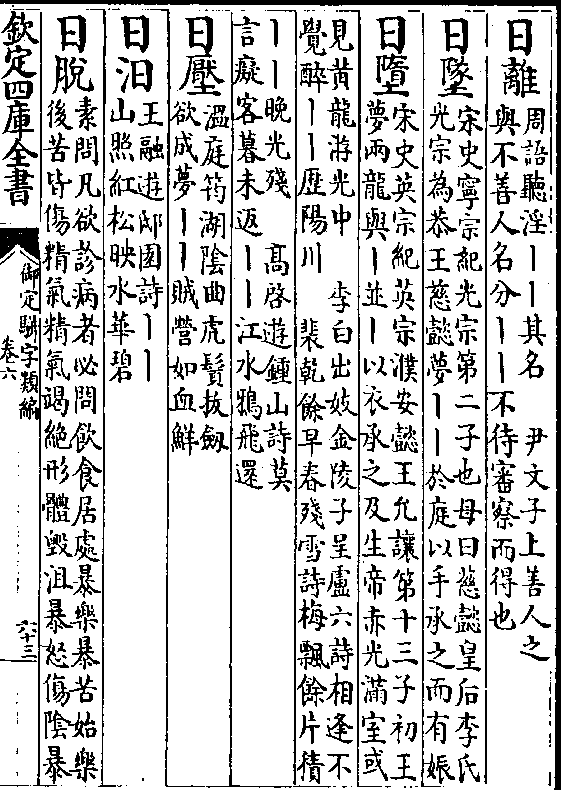 日離
周語聽淫丨丨其名　尹文子上善人之
與不善人名分丨丨不待審察而得也
日墜
宋史寧宗紀光宗第二子也母曰慈懿皇后李氏
光宗為恭王慈懿夢丨丨於庭以手承之而有娠
日墮
宋史英宗紀英宗濮安懿王允讓第十三子初王
夢兩龍與丨並丨以衣承之及生帝赤光滿室或
見黃龍游光中　李白出妓金陵子呈盧六詩相逢不
覺醉丨丨歴陽川　裴乾餘早春殘雪詩梅飄餘片積
丨丨晚光殘　高啓遊鍾山詩莫
言癡客暮未返丨丨江水鴉飛還
日壓
溫庭筠湖陰曲虎鬚拔劔
欲成夢丨丨賊營如血鮮
日汨
王融遊邸園詩丨丨
山照紅松映水華碧
日脫
素問凡欲診病者必問飲食居處暴樂暴苦始樂
後苦皆傷精氣精氣竭絶形體毁沮暴怒傷陰暴
欽定四庫全書
御定駢字類編
卷六
六十三